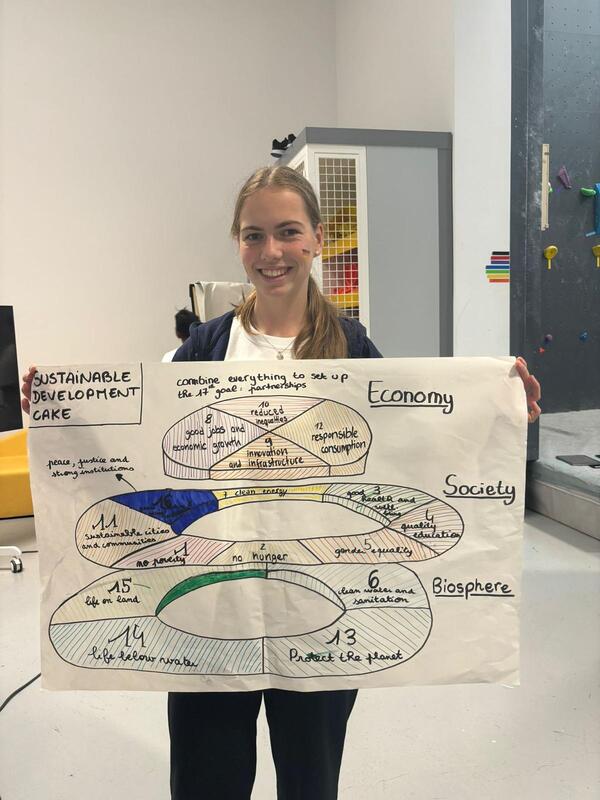 SUSTAINABLE
DEVELOPMENT
CAKE
combine everything to set up
the 17th goal: partnerships
Economy
10
reduced
inequalities
8
good jobs and
economic growth
12
responsible
consumption
9
innovation
and infrastructure
peace, justice and
strong institutions
Society
16
7 clean energy
3
good health and
well
being
11
sustainable cities
and communities
4
quality
education
1
no poverty
2
no hunger
5
gender equality
Biosphere
15
life on land
6
clean water and
sanitation
14
life below water
13
Protect the planet